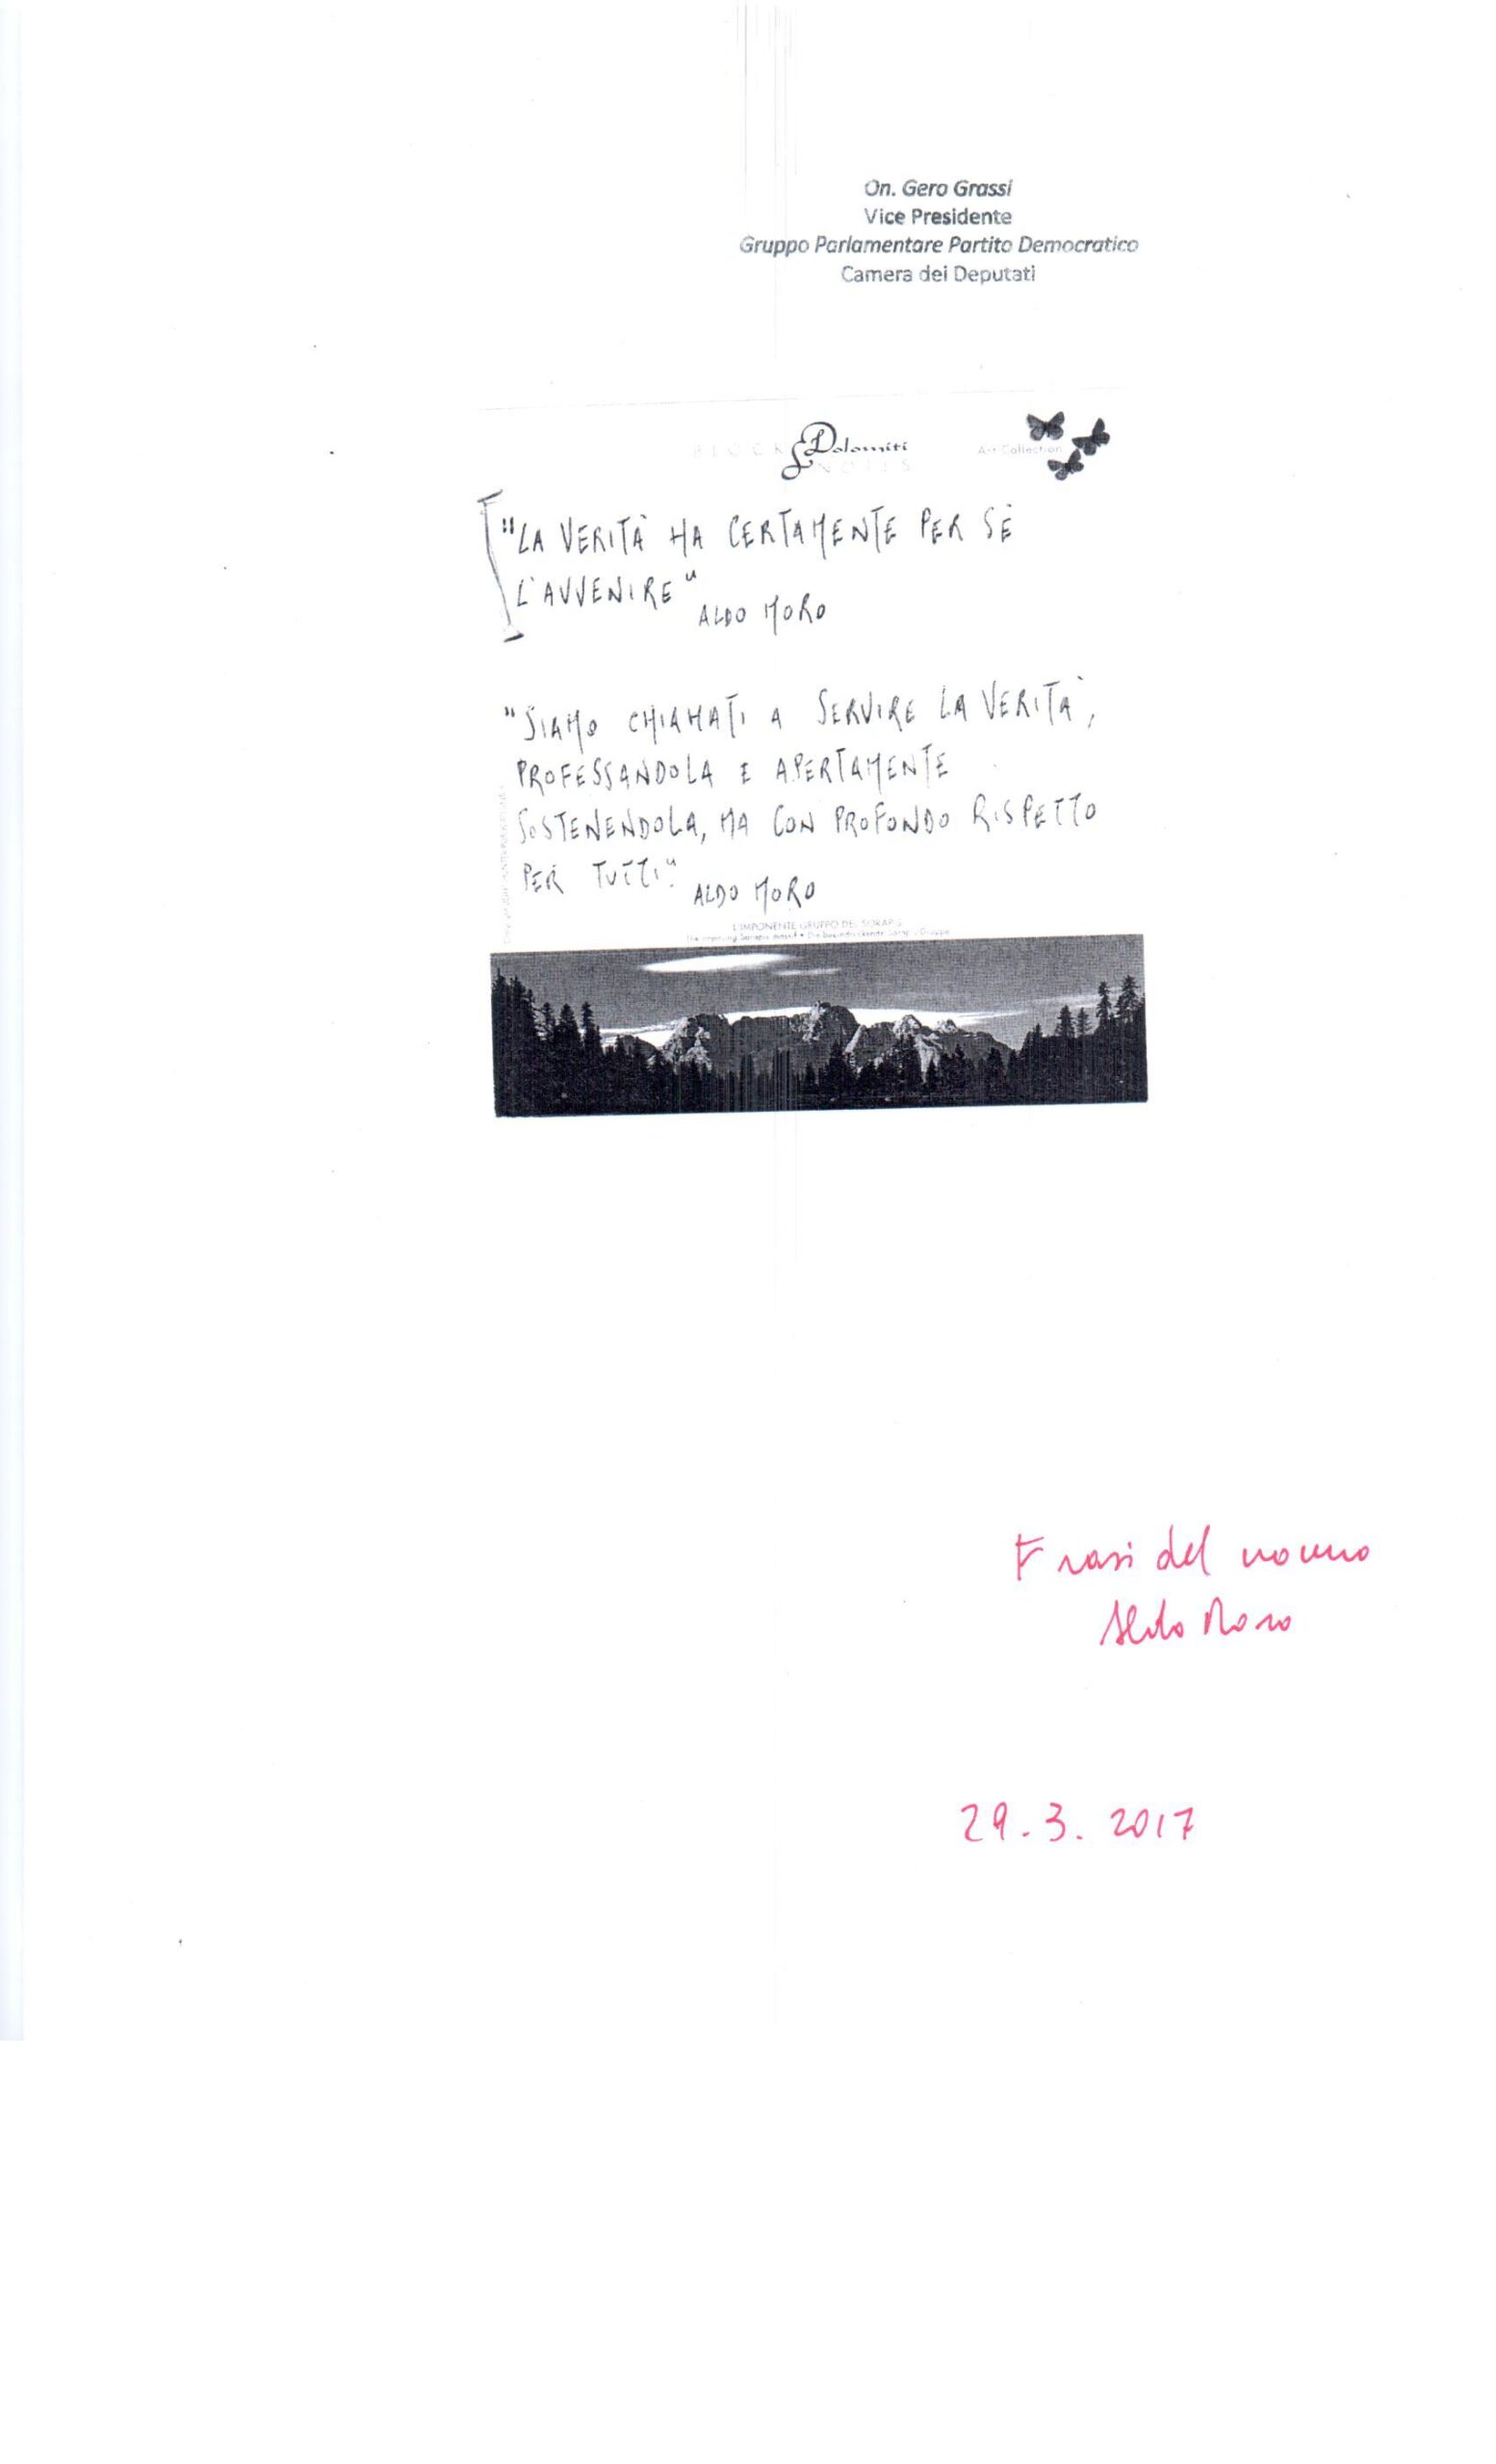 On. Gero Grassi
Vice Presidente
Gruppo Parlamentare Partito Democratico
Camera dei Deputati
BLOCK Dolomiti NOTES
Art Collection
"LA VERITÀ HA CERTAMENTE PER SÈ
L'AVVENIRE"
ALDO MORO
"SIAMO CHIAMATI A SERVIRE LA VERITÀ,
PROFESSANDOLA E APERTAMENTE
SOSTENENDOLA, MA CON PROFONDO RISPETTO
PER TUTTI."
ALDO MORO
L'IMPONENTE GRUPPO DEL SORAPIS
Frasi del nonno
Aldo Moro
29.3.2017